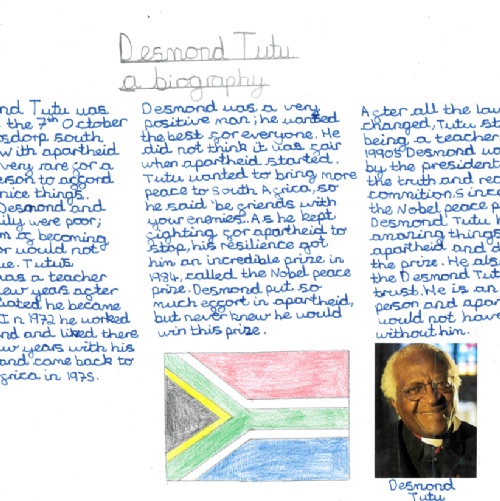 Desmond Tutu
a biography
nd Tutu was
the 7th October
sdorp south
with apartheid
very rare for a
erson to afford
nice things.
Desmond and
ily were poor;
m of becoming
or would not
ue. Tutu's
was a teacher
few years after
ated he became
In 1972 he worked
nd and liked there
ew years with his
and came back to
frica in 1975.
Desmond was a very
positive man; he wanted
the best for everyone. He
did not think it was fair
when apartheid started.
Tutu wanted to bring more
peace to South Africa, so
he said 'be friends with
your enemies'. As he kept
fighting for apartheid to
stop, his resilience got
him an incredible prize in
1984, called the Nobel peace
prize. Desmond put so
much effort in apartheid,
but never knew he would
win this prize.
After all the law
changed, Tutu st
being a teacher
1990s Desmond wa
by the president
the truth and rec
commitions. Since
the Nobel peace p
Desmond Tutu h
amazing things
apartheid and
the prize. He als
the Desmond Tut
trust. He is an
person and apar
would not have
without him.
Desmond
Tutu